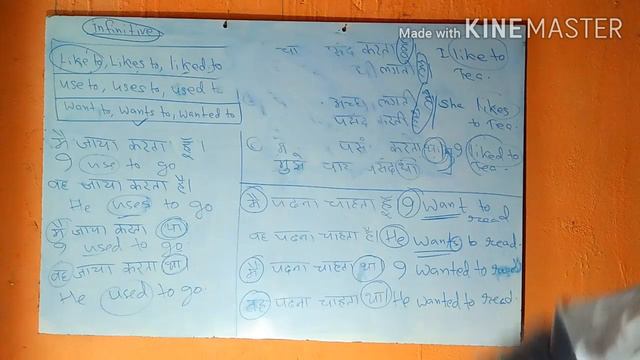 Made with KINEMASTER
infinitive
Like to, Likes to, liked to
use to, uses to, used to
Want to, Wants to, Wanted to
मैं जाया करता हूँ।
I use to go
वह जाया करता है।
He uses to go
मैं जाया करता था
I used to go
वह जाया करता था
He used to go.
चा पसंद करता हूँ I like to
लगती है Tea.
अच्छी लगती है She likes
पसंद करती to Tea.
मैं करता था I liked to
मुझे चाय पसंद था Tea.
मैं पढना चाहता हूँ I Want to read
वह पढना चाहता है। He Wants to read.
मैं पढना चाहता था I Wanted to read
वह पढना चाहता था He Wanted to read.